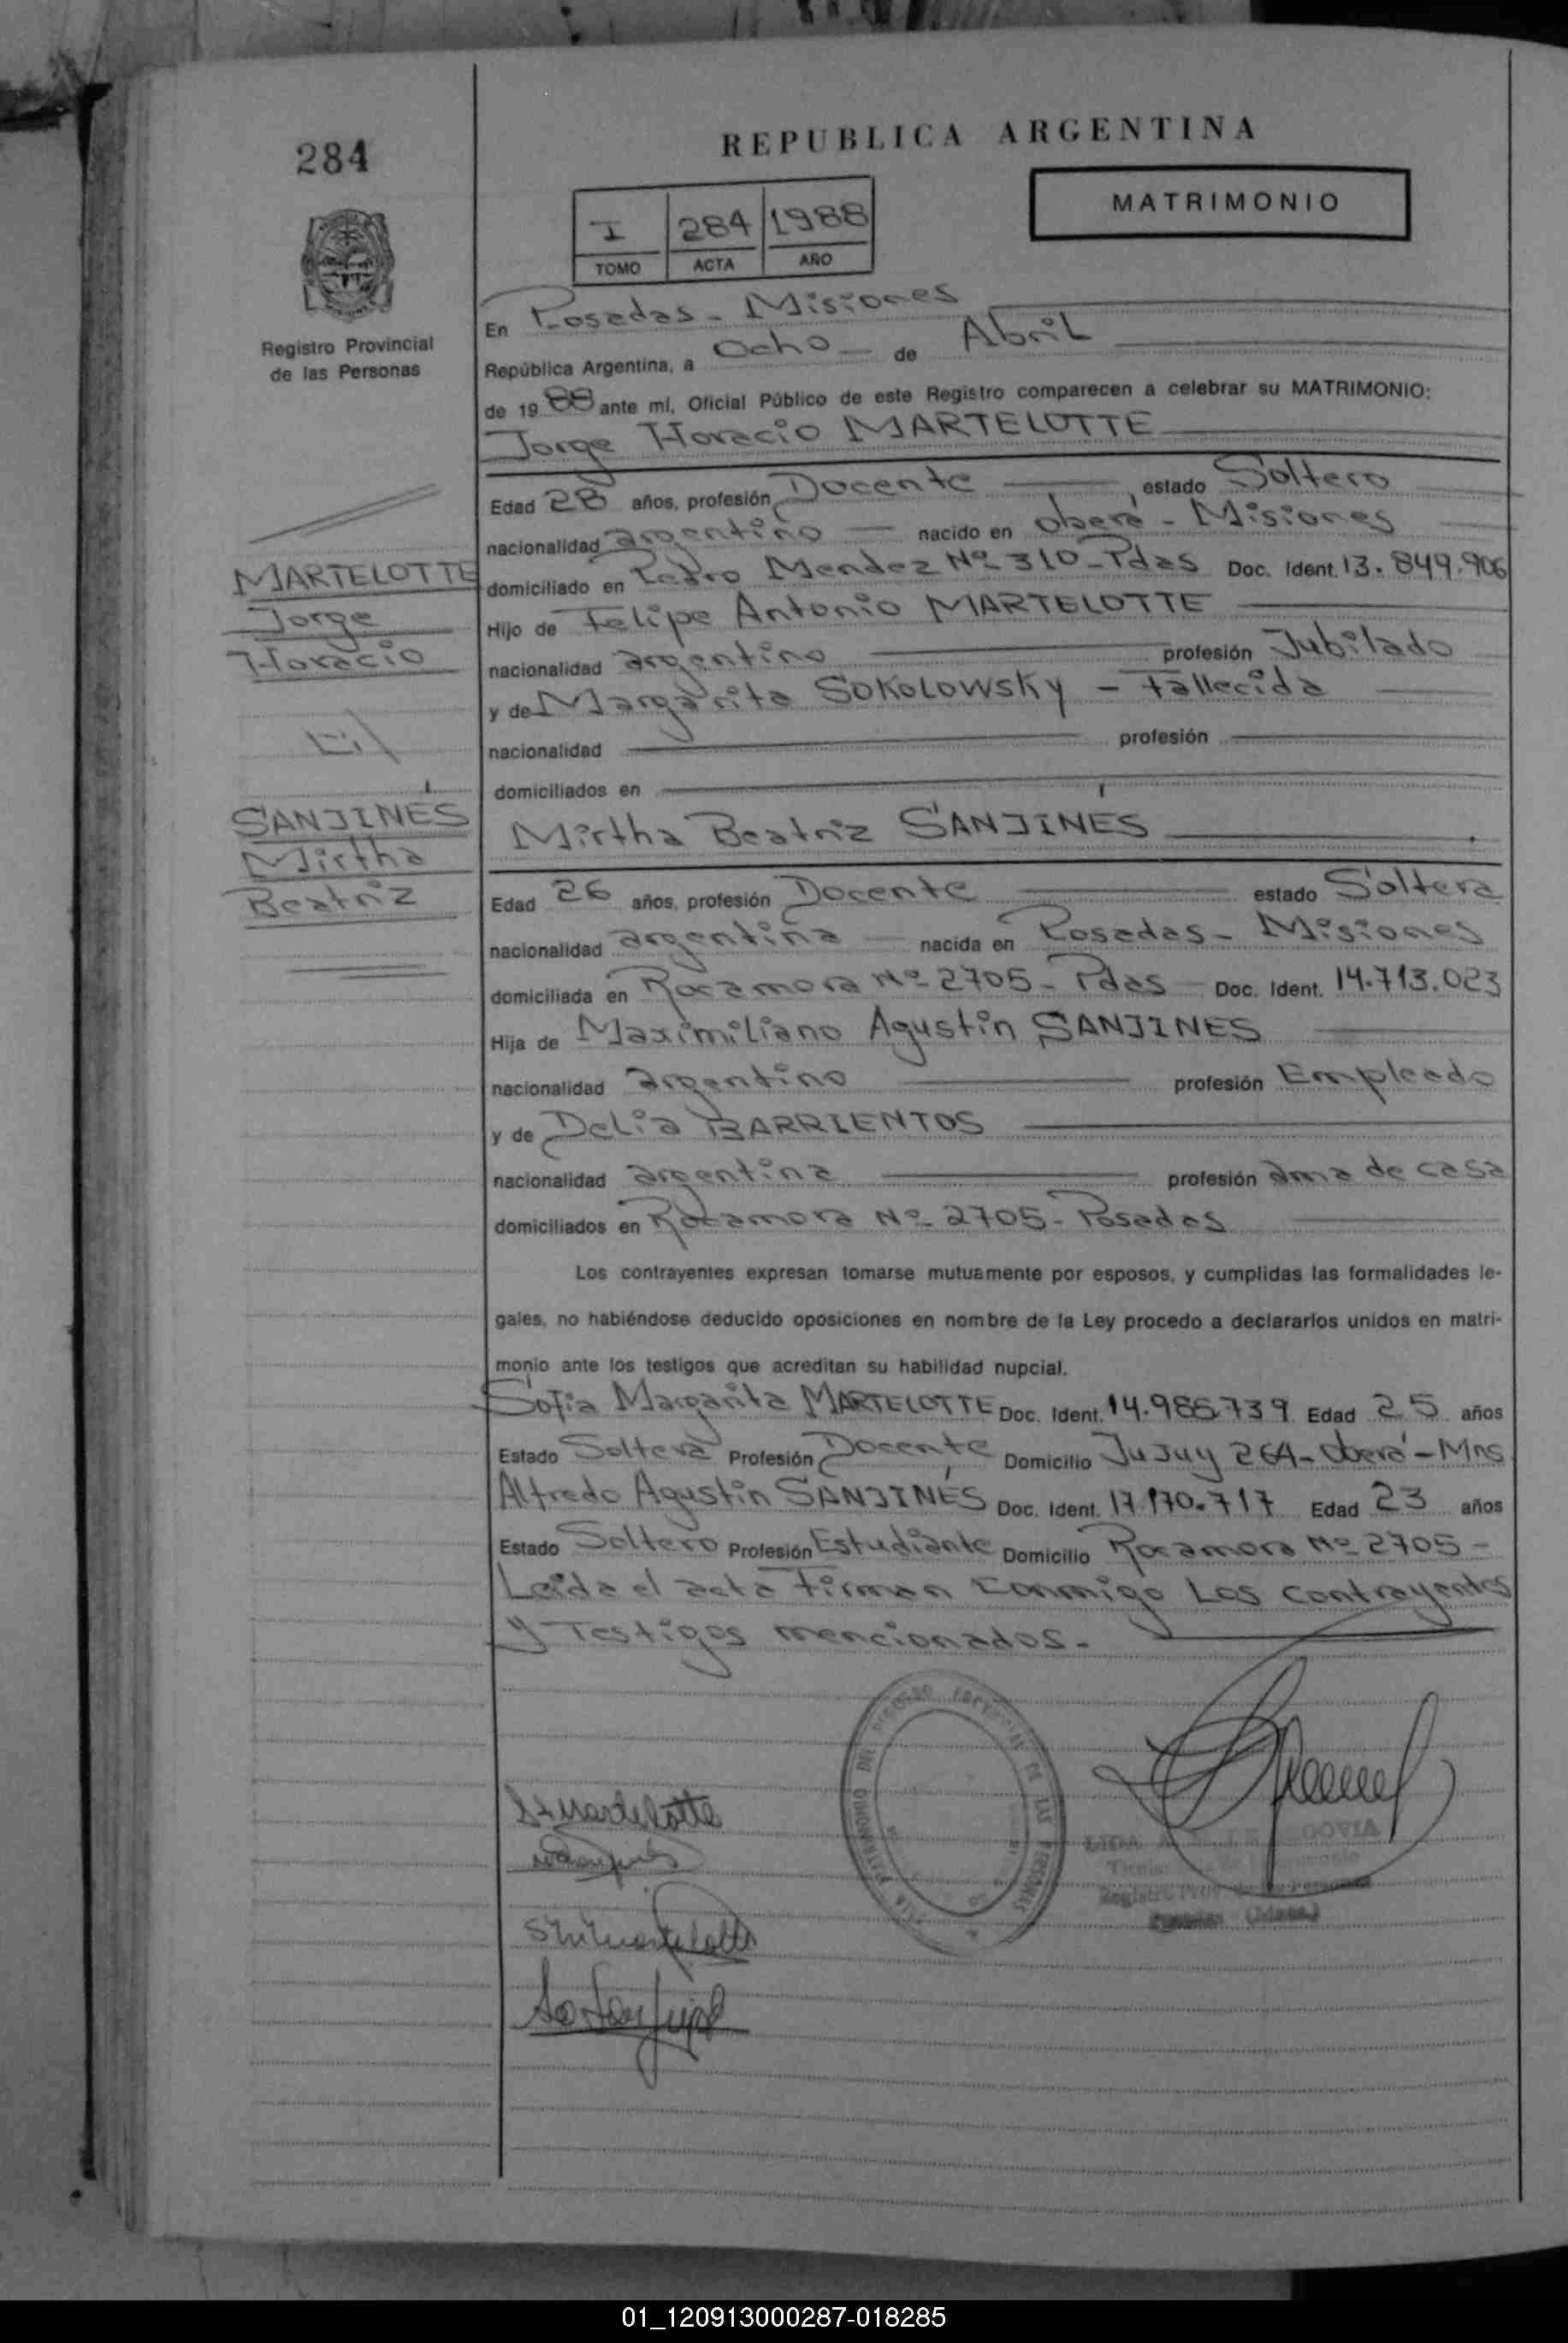 284
REPUBLICA ARGENTINA
MATRIMONIO
I 284 1988
TOMO ACTA AÑO
Registro Provincial
de las Personas
En Posadas - Misiones
República Argentina, a Ocho de Abril
de 1988 ante mí, Oficial Público de este Registro comparecen a celebrar su MATRIMONIO:
Jorge Horacio MARTELOTTE
Edad 28 años, profesión Docente estado Soltero
nacionalidad argentino nacido en oberá - Misiones
MARTELOTTE
Jorge
Horacio
domiciliado en Pedro Mendez Nº 310 - Pdas Doc. Ident. 13.849.906
Hijo de Felipe Antonio MARTELOTTE
nacionalidad argentino profesión Jubilado
y de Margarita SOKOLOWSKY - Fallecida
nacionalidad profesión
domiciliados en
SANJINÉS
Mirtha
Beatriz
Mirtha Beatriz SANJINÉS
Edad 26 años, profesión Docente estado Soltera
nacionalidad argentina nacida en Posadas - Misiones
domiciliada en Rocamora Nº 2705 - Pdas Doc. Ident. 14.713.023
Hija de Maximiliano Agustin SANJINES
nacionalidad argentino profesión Empleado
y de Delia BARRIENTOS
nacionalidad argentina profesión ama de casa
domiciliados en Rocamora Nº 2705 - Posadas
Los contrayentes expresan tomarse mutuamente por esposos, y cumplidas las formalidades le-
gales, no habiéndose deducido oposiciones en nombre de la Ley procedo a declararlos unidos en matri-
monio ante los testigos que acreditan su habilidad nupcial.
Sofía Margarita MARTELOTTE Doc. Ident. 14.986.739 Edad 25 años
Estado Soltera Profesión Docente Domicilio Jujuy 264 - Oberá - Mns
Alfredo Agustin SANJINÉS Doc. Ident. 17.170.717 Edad 23 años
Estado Soltero Profesión Estudiante Domicilio Rocamora Nº 2705 -
Leida el acta Firman conmigo Los contrayentes
y Testigos mencionados.-
DE LAS PERSONAS
Posadas (Mnes.)
01_120913000287-018285